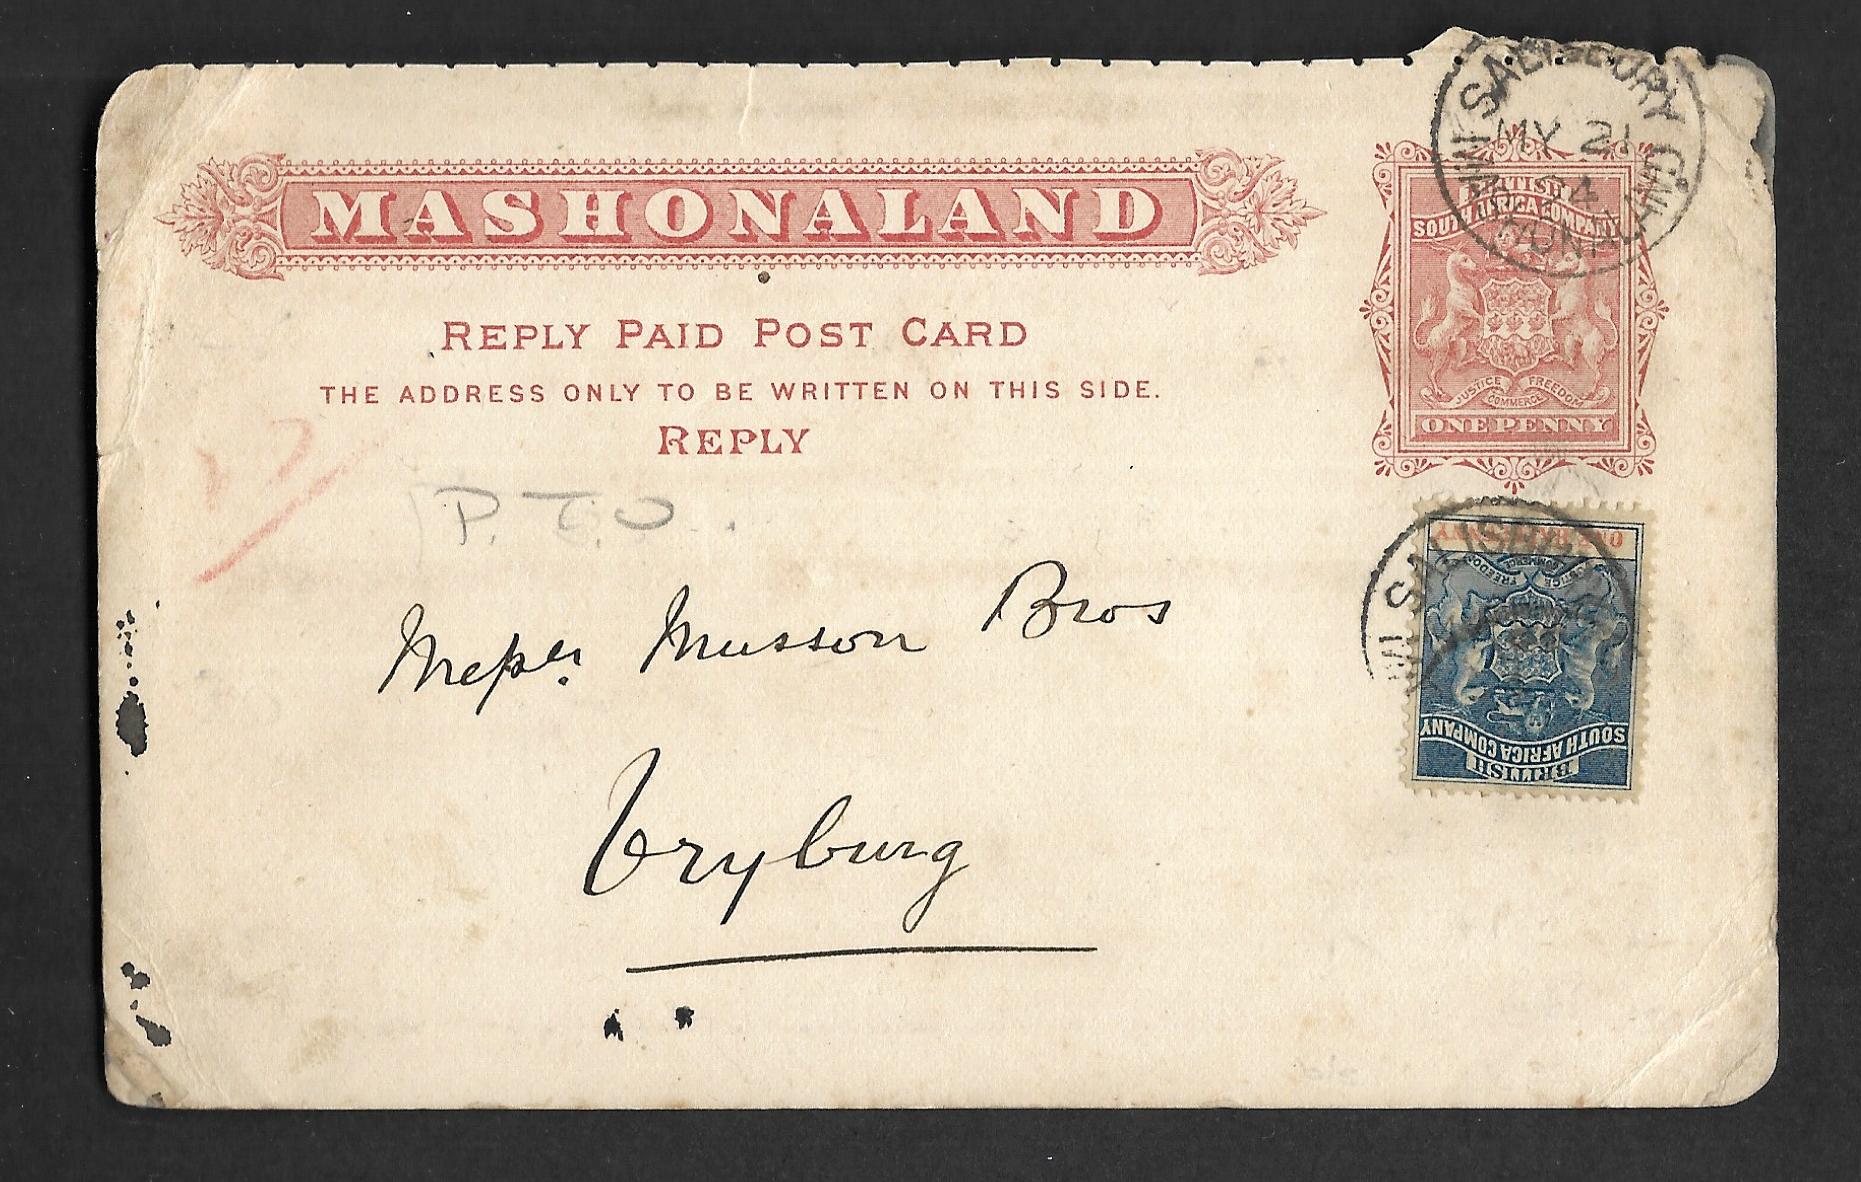 MASHONALAND
REPLY PAID POST CARD
THE ADDRESS ONLY TO BE WRITTEN ON THIS SIDE.
REPLY
P.T.O.
Messrs. Musson Bros
Vryburg
SALISBURY
MY 21
94
BRITISH
SOUTH AFRICA COMPANY
JUSTICE FREEDOM
COMMERCE
ONE PENNY
SALISBURY
BRITISH
SOUTH AFRICA COMPANY
JUSTICE FREEDOM
COMMERCE
ONE HALF PENNY